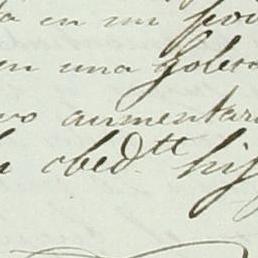 en mi pod
en una goleta
vo aumentar
obed.tt hij